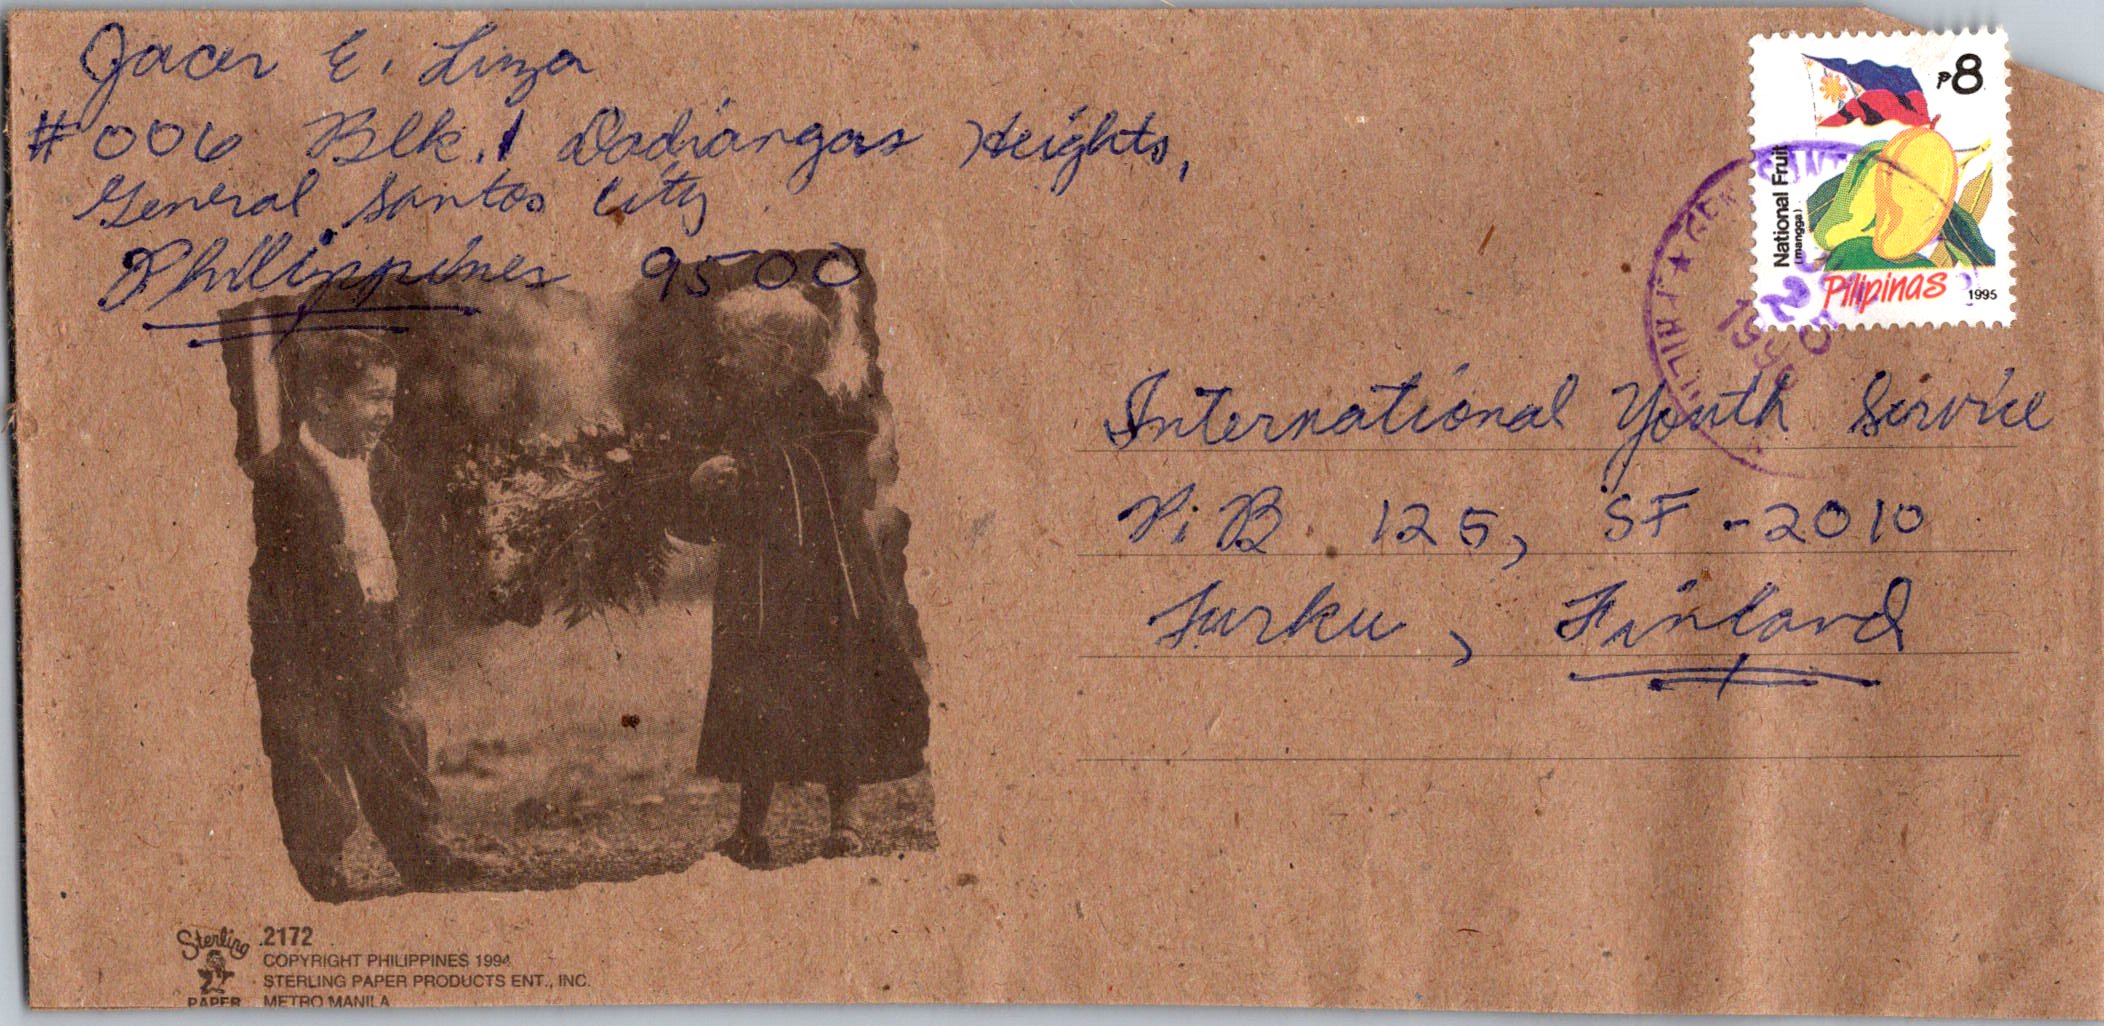 Jacer E. Linza
#006 Blk. 1 Dadiangas Heights,
General Santos City
Philippines 9500
₱8
National Fruit
(mangga)
Pilipinas 1995
International Youth Service
P.B 125, SF -2010
Turku, Finland
Sterling
PAPER
2172
COPYRIGHT PHILIPPINES 1994
STERLING PAPER PRODUCTS ENT., INC.
METRO MANILA